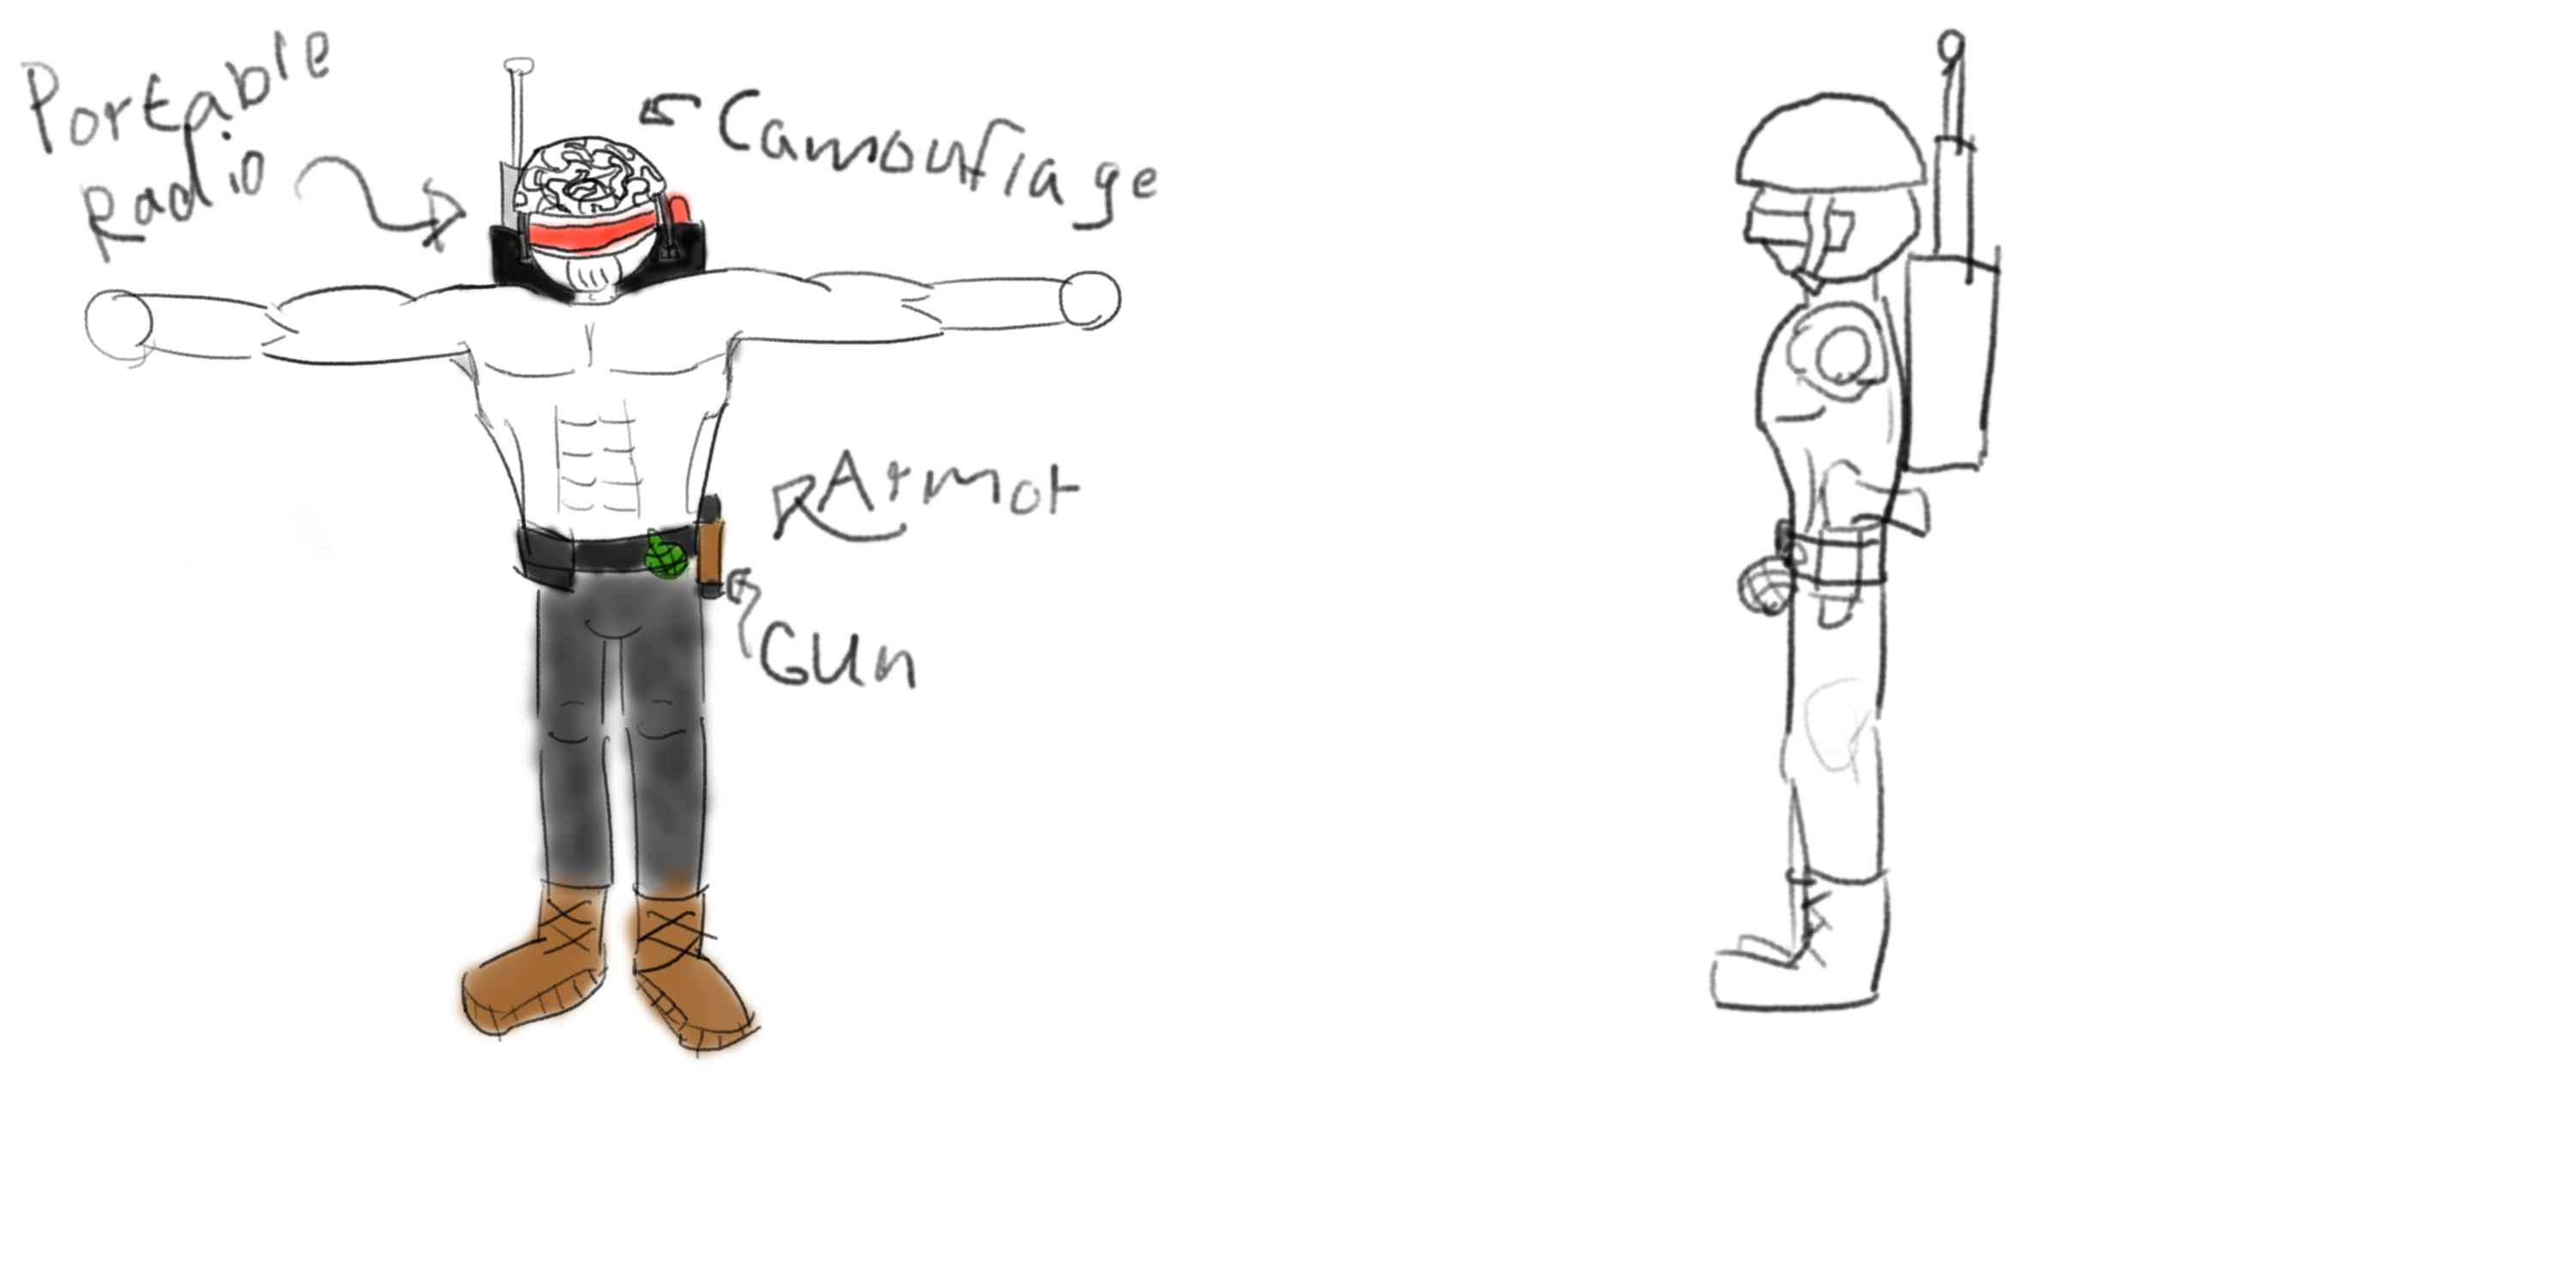 Portable
Radio
Camouflage
Armor
Gun